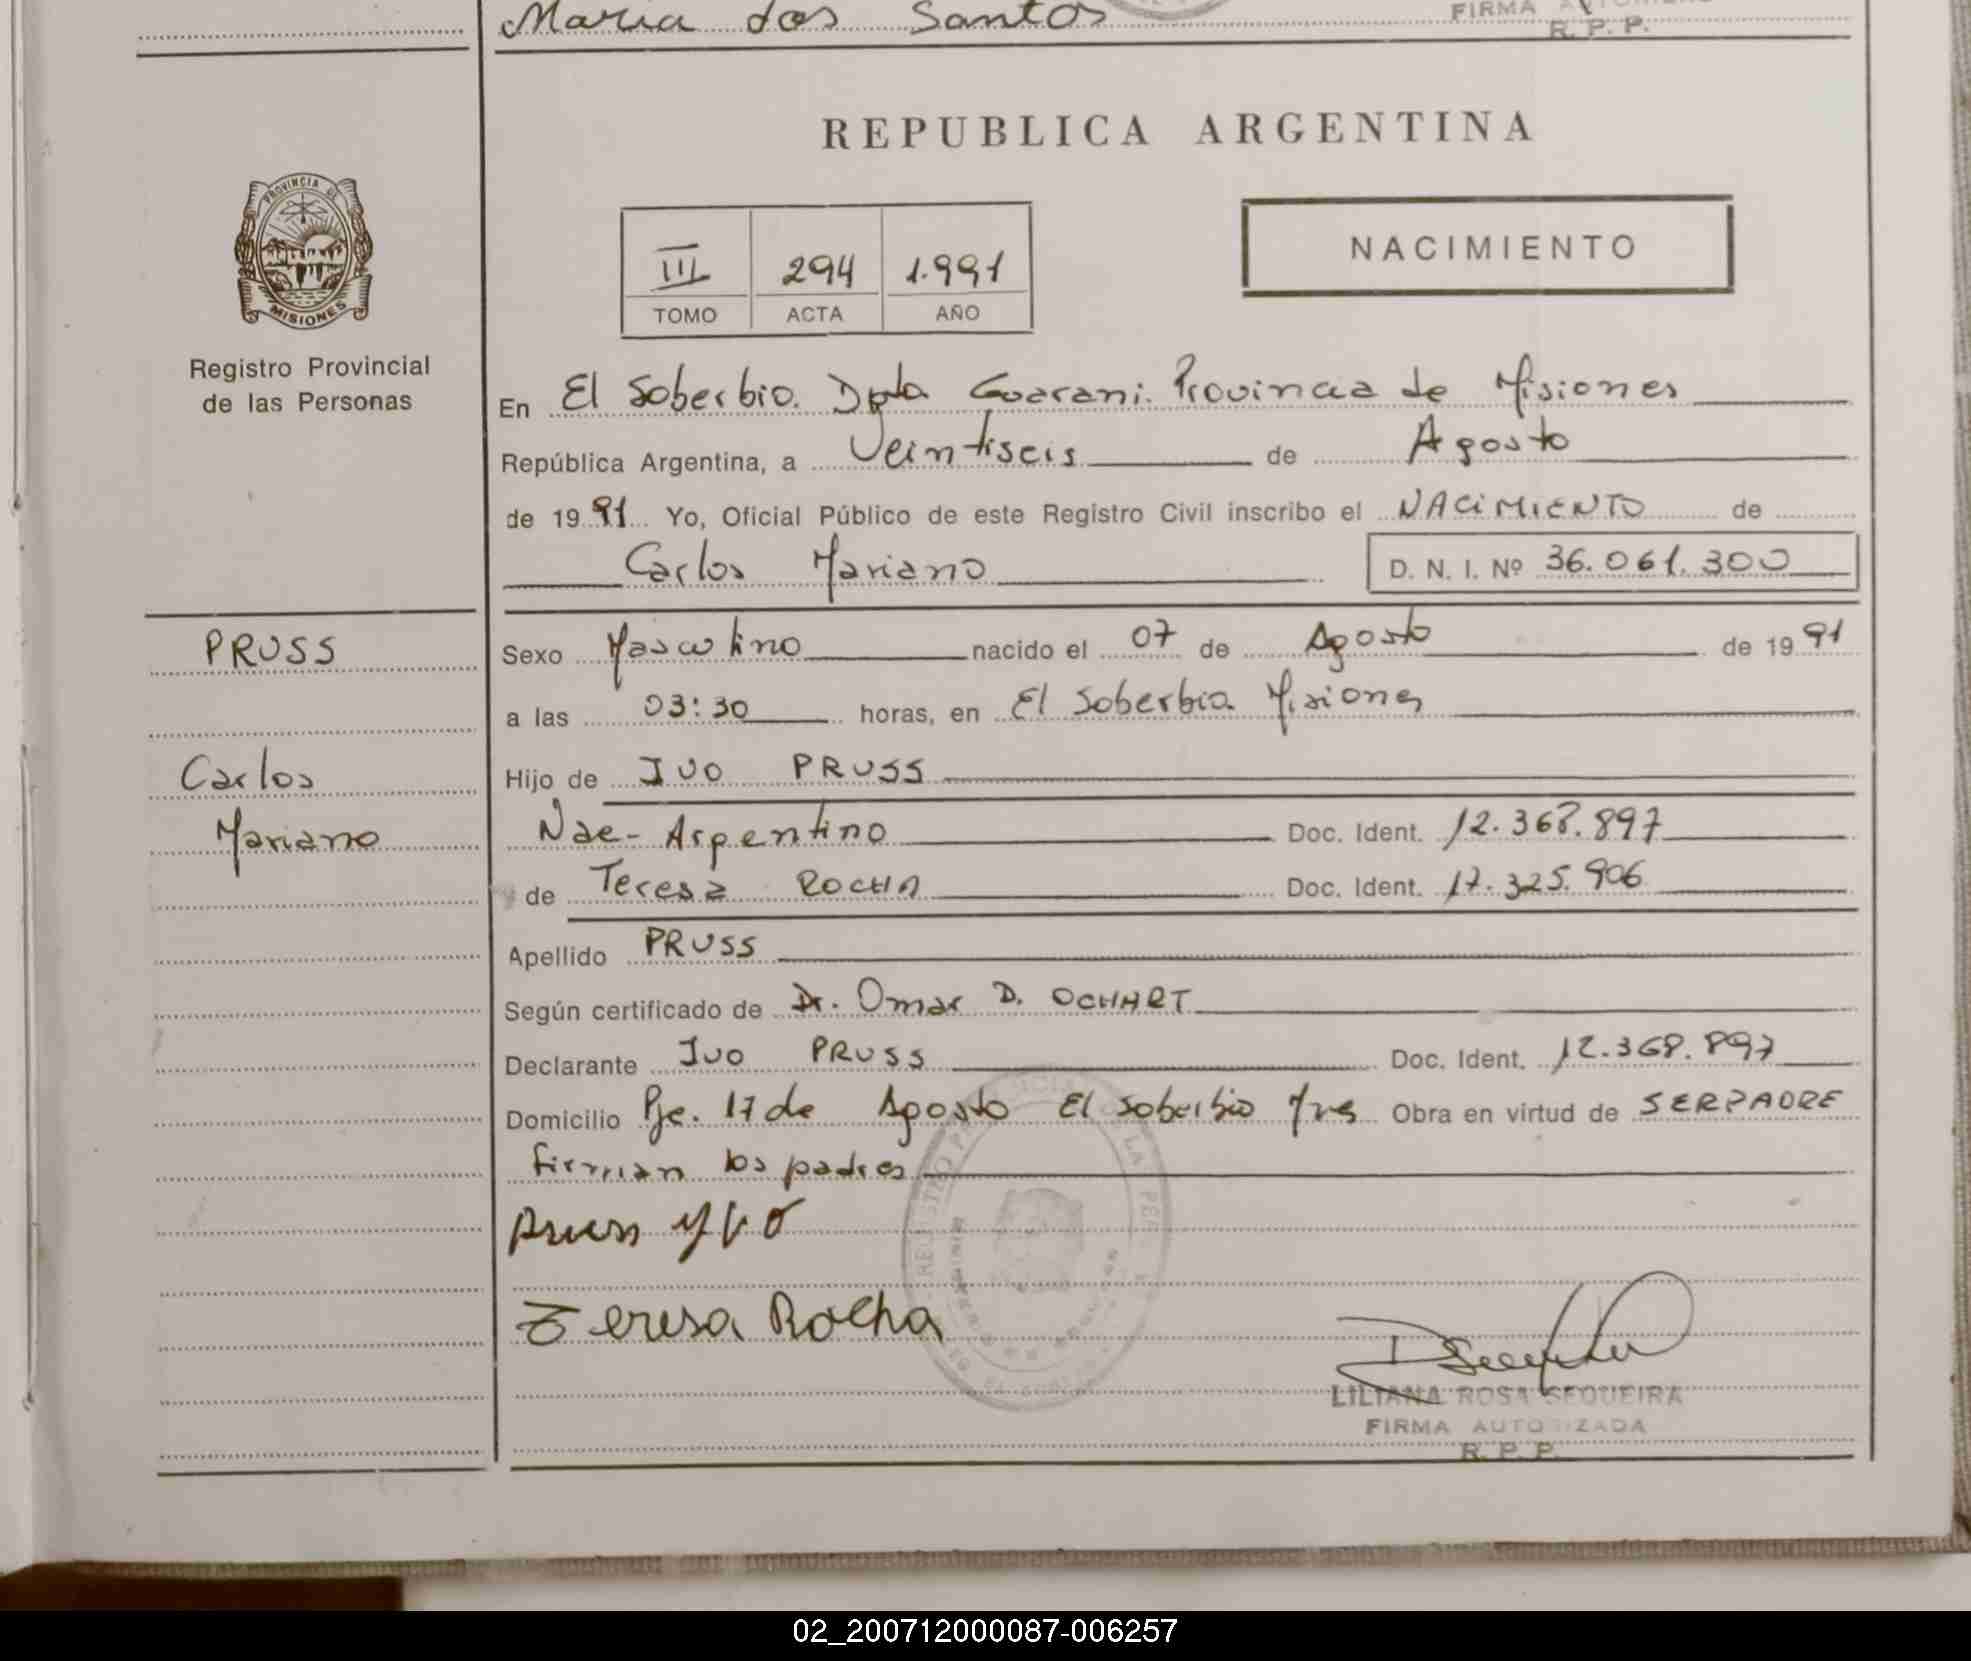 Maria dos Santos
FIRMA
R. P. P.
REPUBLICA ARGENTINA
PROVINCIA DE
MISIONES
Registro Provincial
de las Personas
III 294 1.991
TOMO ACTA AÑO
NACIMIENTO
En El Soberbio. Dpto Guarani. Provincia de Misiones
República Argentina, a Veintiseis de Agosto
de 19 91 Yo, Oficial Público de este Registro Civil inscribo el NACIMIENTO de
Carlos Mariano D. N. I. Nº 36.061.300
PRUSS
Carlos
Mariano
Sexo Masculino nacido el 07 de Agosto de 19 91
a las 03:30 horas, en El Soberbio Misiones
Hijo de IVO PRUSS
Nac- Argentino Doc. Ident. 12.368.897
de Teresa ROCHA Doc. Ident. 17.325.906
Apellido PRUSS
Según certificado de Dr. Omar D. OCHART
Declarante Ivo PRUSS Doc. Ident. 12.368.897
Domicilio Pje. 17 de Agosto El Soberbio Mnes Obra en virtud de SER PADRE
firman los padres
Pruss Yvo
Teresa Rocha
LILIANA ROSA SEQUEIRA
FIRMA AUTORIZADA
R. P. P.
02_200712000087-006257